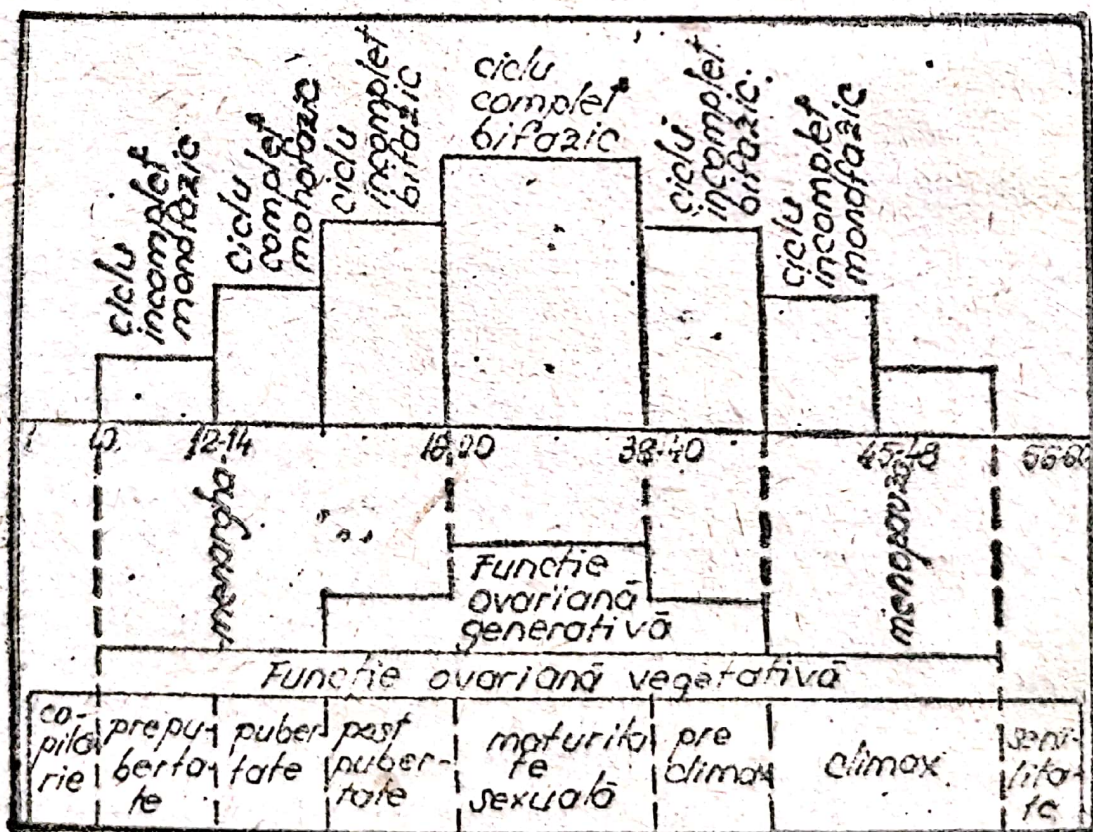 ciclu
incomplet
monofazic
ciclu
complet
monofazic
ciclu
incomplet
bifazic
ciclu
complet
bifazic
ciclu
incomplet
bifazic
ciclu
incomplet
monofazic
1 10 12-14 18-20 38-40 45-48
menarha
menopauză
Funcție
ovariană
generativă
Funcție ovariană vegetativă
co-
pilă
rie
prepu-
berta-
te
puber
tate
post
puber-
tate
maturita
te
sexuală
pre
climax
climax
seni-
lita-
te